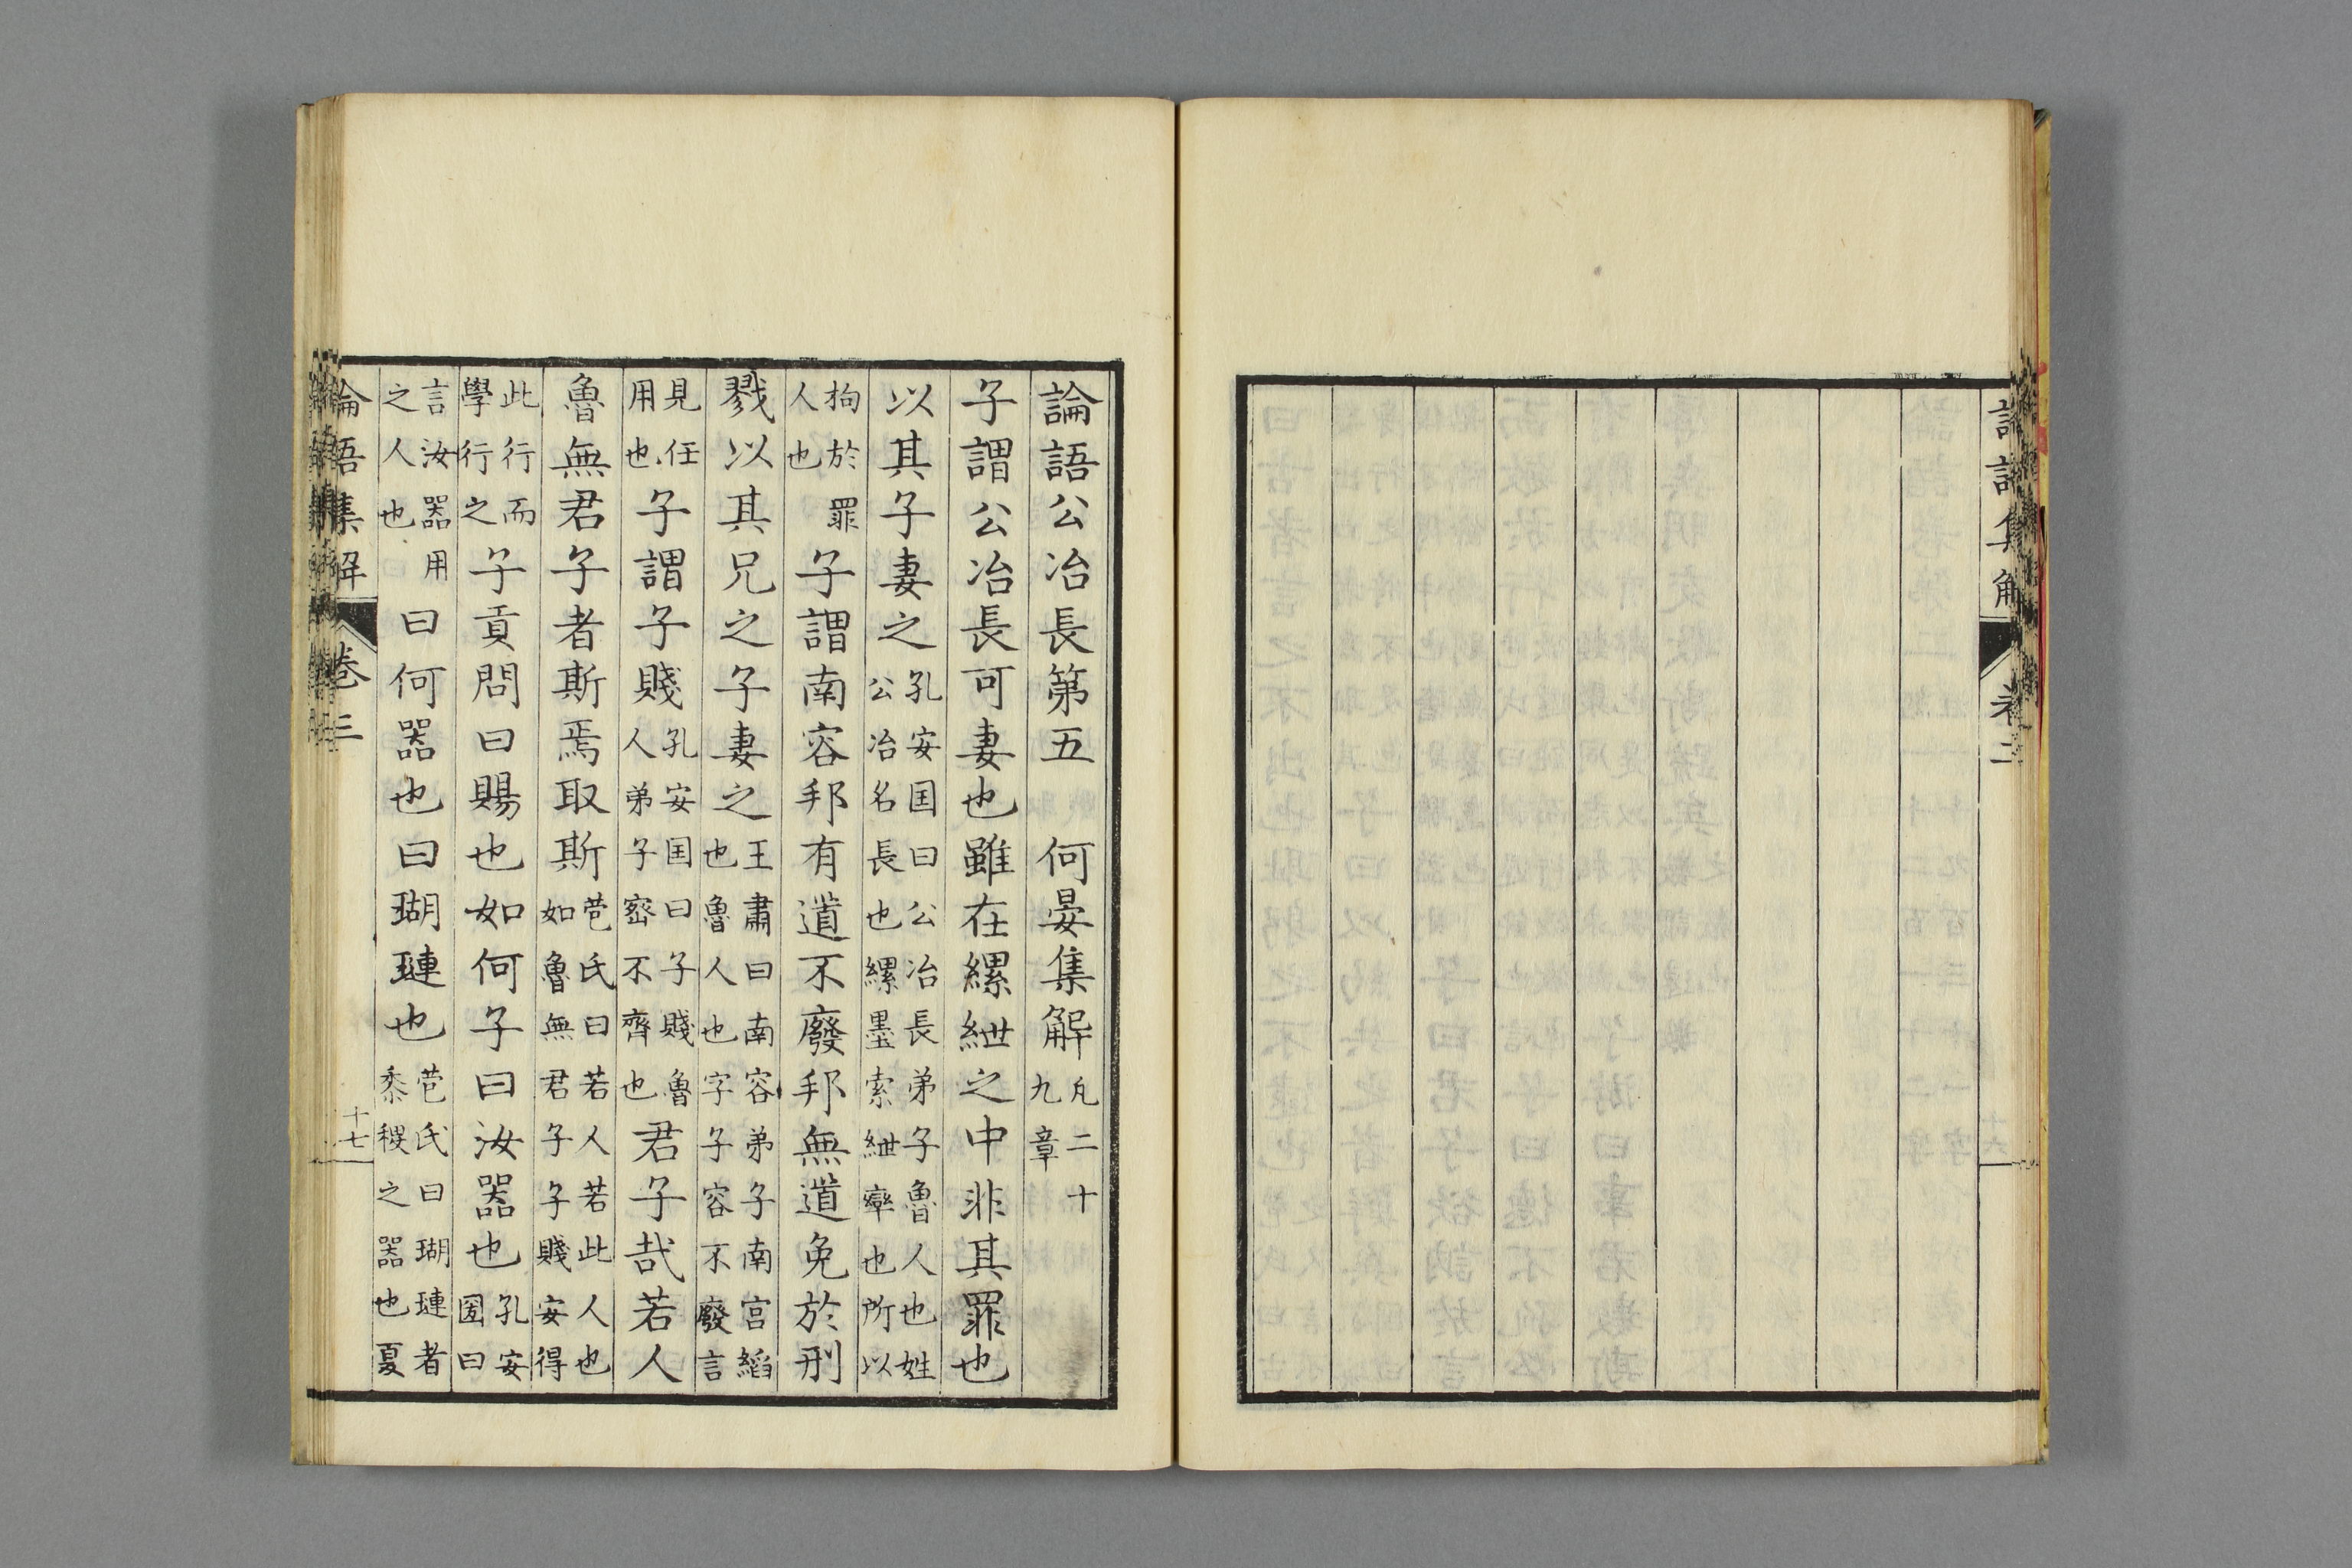 論語公冶長第五　何晏集解凢二十九章
子謂公冶長可妻也雖在縲紲之中非其罪也
以其子妻之孔安囯曰公冶長弟子魯人也姓公冶名長也縲墨索紲孿也所以
拘於罪人也子謂南容邦有道不廢邦無道免於刑
戮以其兄之子妻之王肅曰南容弟子南宫縚也魯人也字子容不廢言
見任用也子謂子賤孔安囯曰子賤魯人弟子宻不齊也君子哉若人
魯無君子者斯焉取斯苞氏曰若人若此人也如魯無君子子賤安得
此行而學行之子貢問曰賜也如何子曰汝器也孔安囯曰
言汝器用之人也曰何器也曰瑚璉也苞氏曰瑚璉者黍稷之器也夏
論語集解
卷三
十七